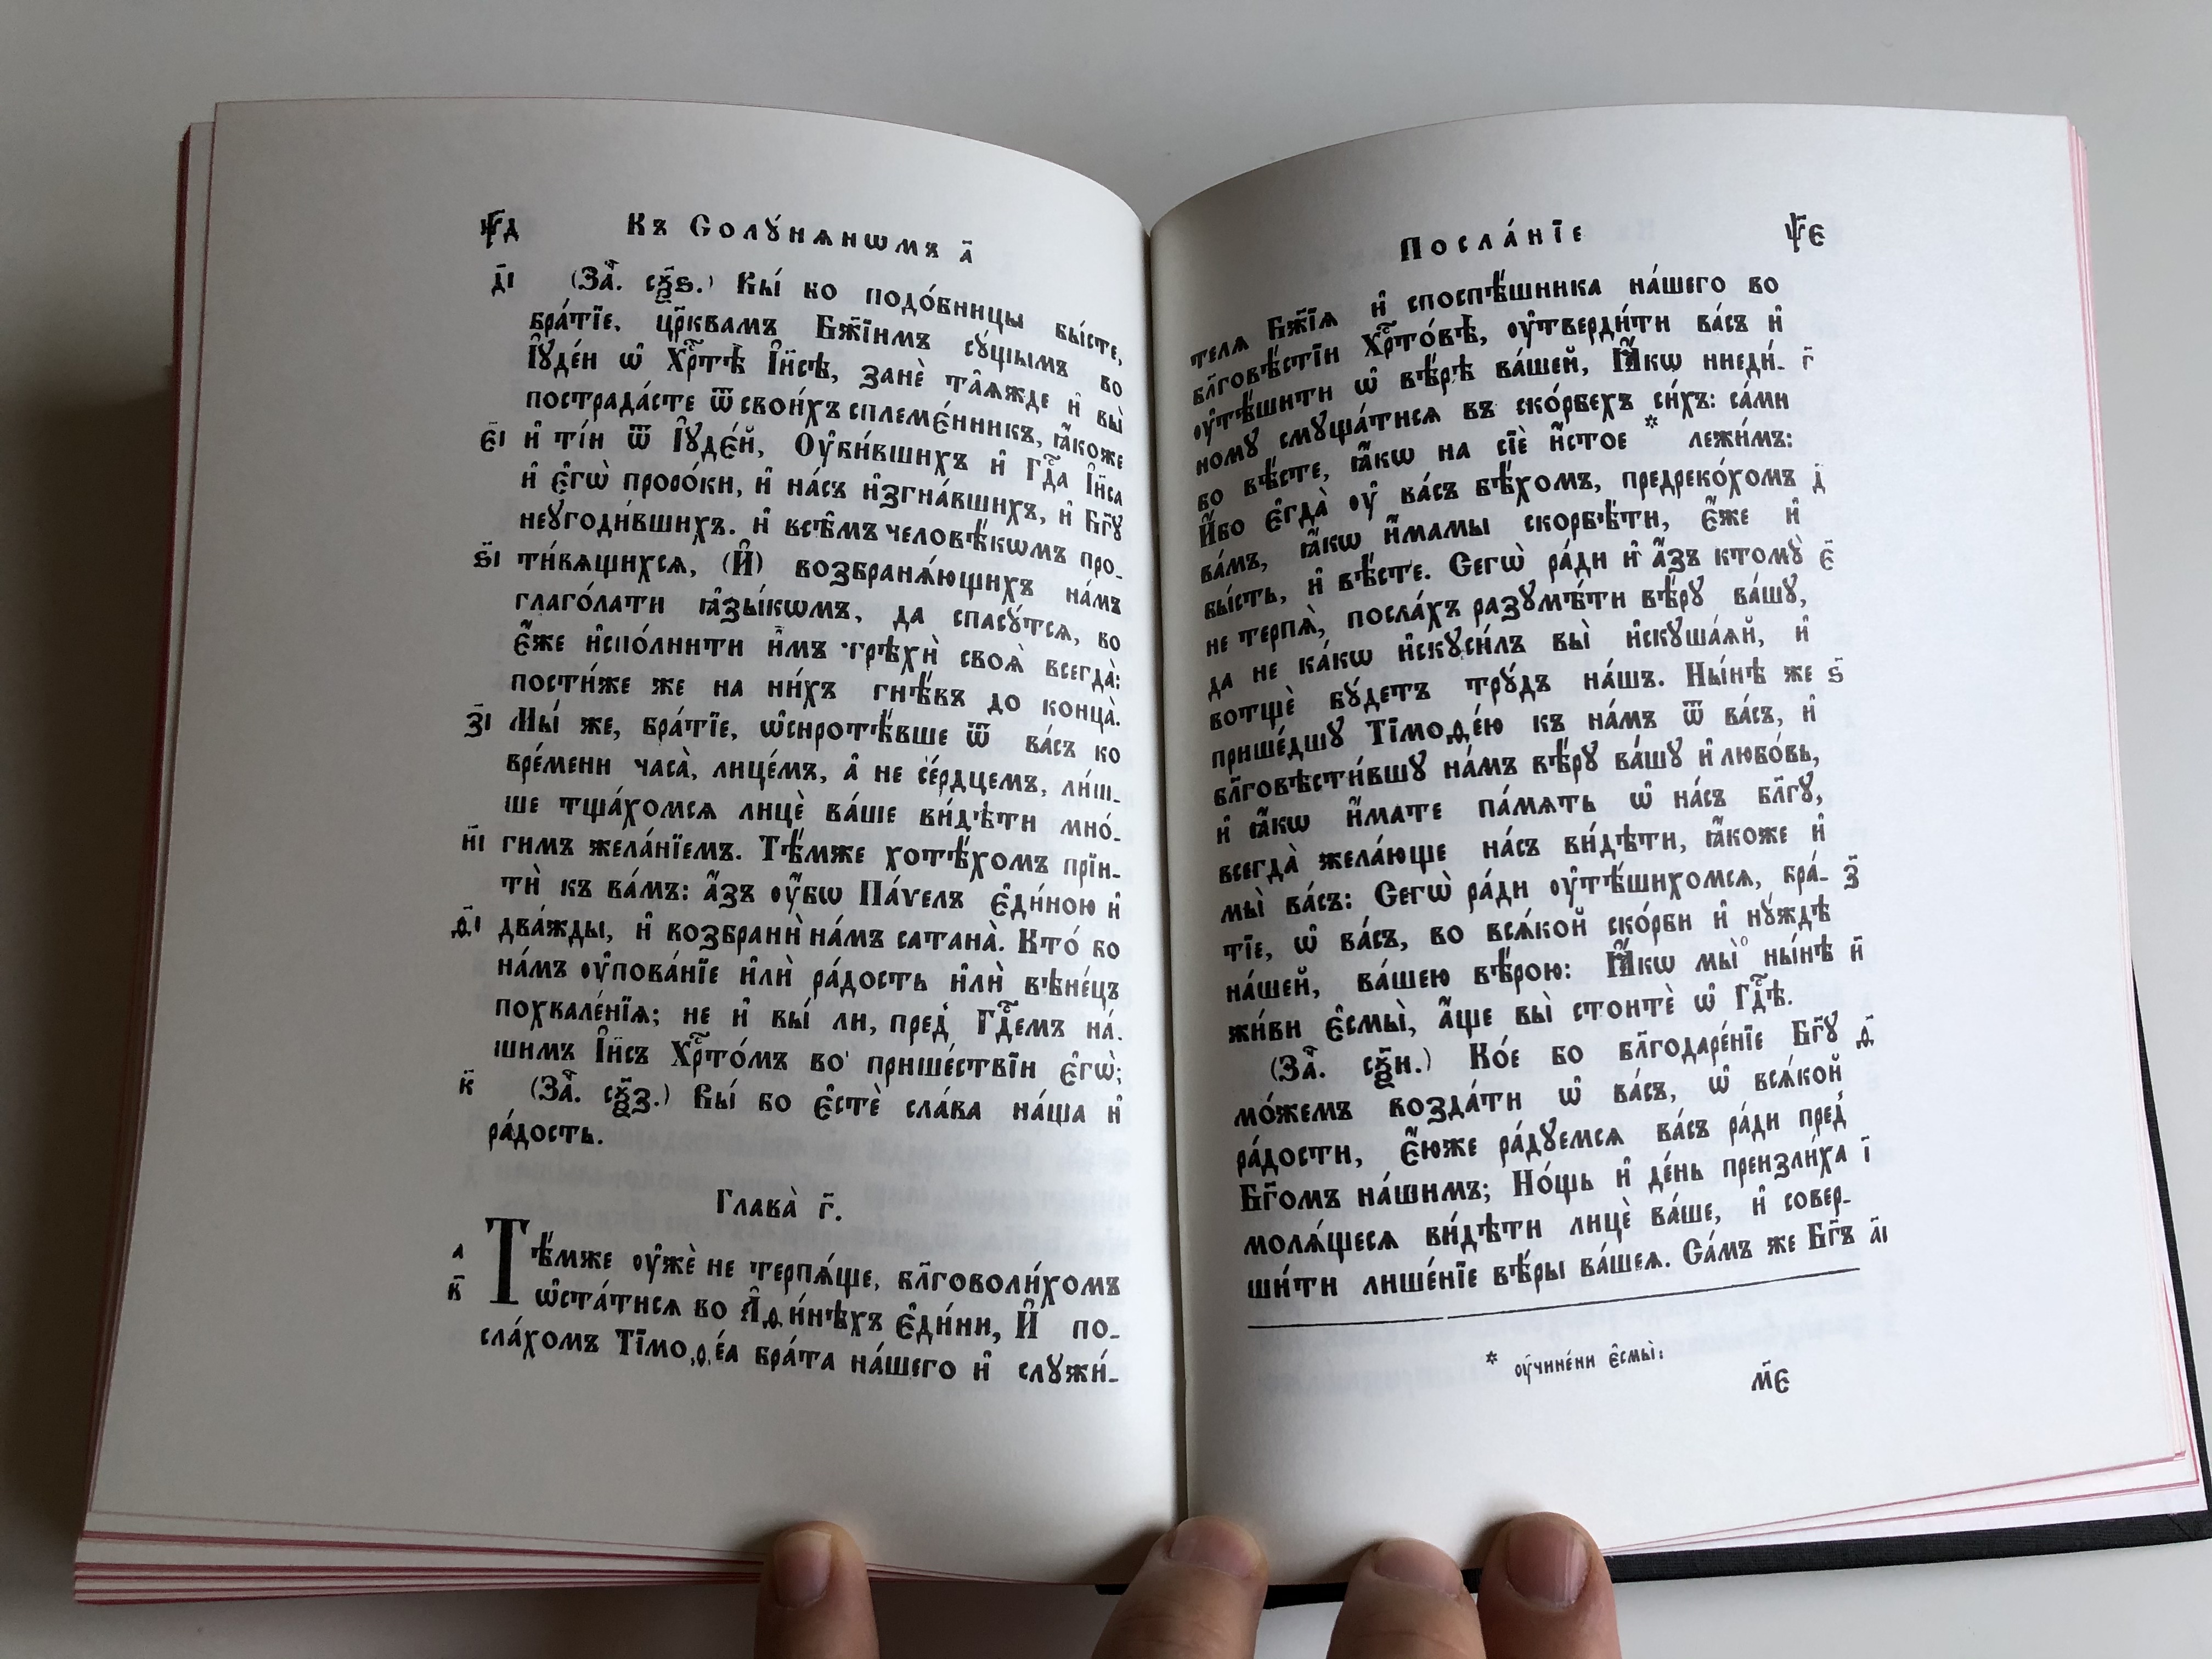 ѱ҃д Къ Солꙋ́нѧнѡмъ а҃
д҃і (За́ч. сѯ҃ѕ.) Вы́ бо подо́бницы бы́сте,
бра́тїе, цр҃квамъ Бж҃їимъ сꙋ́щымъ во
І҆ꙋде́и ѡ҆ Хрⷭ҇тѣ́ І҆и҃сѣ, занѐ та̑ѧжде и҆ вы̀
пострада́сте ѿ свои́хъ сплеме́нникъ, ꙗ҆́коже
є҃і и҆ ті́и ѿ І҆ꙋдє́й, Оу҆би́вшихъ и҆ Гдⷭ҇а І҆и҃са
и҆ є҆гѡ̀ проро́ки, и҆ на́съ и҆згна́вшихъ, и҆ Бг҃ꙋ
неꙋгоди́вшихъ. и҆ всѣ̑мъ человѣ́кѡмъ про-
ѕ҃і ти́вѧщихсѧ, (И҆) возбранѧ́ющихъ на́мъ
глаго́лати ꙗ҆зы́кѡмъ, да спасꙋ́тсѧ, во
є҆́же и҆спо́лнити и҆̀мъ грѣхѝ своѧ̀ всегда̀:
пости́же же на ни́хъ гнѣ́въ до конца̀.
з҃і Мы́ же, бра́тїе, ѡ҆сиротѣ́вше ѿ ва́съ ко
вре́мени часа̀, лице́мъ, а҆ не се́рдцемъ, ли́ш-
ше тща́хомсѧ лицѐ ва́ше ви́дѣти мно́-
и҃і гимъ жела́нїемъ. Тѣ́мже хотѣ́хомъ прїи-
тѝ къ ва́мъ: а҆́зъ оу҆́бѡ Па́ѵелъ є҆ди́ною и҆
ѳ҃і два́жды, и҆ возбранѝ на́мъ сатана̀. Кто́ бо
на́мъ оу҆пова́нїе и҆лѝ ра́дость и҆лѝ вѣне́цъ
похвале́нїѧ; не и҆ вы́ ли, пред̾ Гдⷭ҇емъ на́-
шимъ І҆и҃съ Хрⷭ҇то́мъ во прише́ствїи є҆гѡ̀;
к҃ (За́ч. сѯ҃з.) Вы́ бо є҆стѐ сла́ва на́ша и҆
ра́дость.
Глава̀ г҃.
а Тѣ́мже оу҆жѐ не терпѧ́ще, бл҃говоли́хомъ
в҃ ѡ҆ста́тисѧ во А҆ѳи́нѣхъ є҆ди́ни, И҆ по-
сла́хомъ Тїмоѳе́а бра́та на́шего и҆ слꙋжи́-
Посла́нїе ѱ҃є
телѧ Бж҃їѧ и҆ споспѣ́шника на́шего во
бл҃говѣ́стїи Хрⷭ҇то́вѣ, оу҆тверди́ти ва́съ и҆
оу҆тѣ́шити ѡ҆ вѣ́рѣ ва́шей, Ꙗ҆́кѡ ниеди́- г҃
номꙋ смꙋща́тисѧ въ ско́рбехъ си́хъ: са́ми
бо вѣ́сте, ꙗ҆́кѡ на сїѐ и҆́стое * лежи́мъ:
И҆́бо є҆гда̀ оу҆ ва́съ бѣ́хомъ, предреко́хомъ д҃
ва́мъ, ꙗ҆́кѡ и҆́мамы скорбѣ́ти, є҆́же и҆
бы́сть, и҆ вѣ́сте. Сегѡ̀ ра́ди и҆ а҆́зъ ктомꙋ̀ є҃
не терпѧ̀, посла́хъ разꙋмѣ́ти вѣ́рꙋ ва́шꙋ,
да не ка́кѡ и҆скꙋси́лъ вы̀ и҆скꙋша́ѧй, и҆
вотщѐ бꙋ́детъ трꙋ́дъ на́шъ. Ны́нѣ же ѕ҃
прише́дшꙋ Тїмоѳе́ю къ на́мъ ѿ ва́съ, и҆
бл҃говѣсти́вшꙋ на́мъ вѣ́рꙋ ва́шꙋ и҆ любо́вь,
и҆ ꙗ҆́кѡ и҆́мате па́мѧть ѡ҆ на́съ бл҃гꙋ,
всегда̀ жела́юще на́съ ви́дѣти, ꙗ҆́коже и҆
мы̀ ва́съ: Сегѡ̀ ра́ди оу҆тѣ́шихомсѧ, бра́- з҃
тїе, ѡ҆ ва́съ, во всѧ́кой ско́рби и҆ нꙋ́ждѣ
на́шей, ва́шею вѣ́рою: Ꙗ҆́кѡ мы̀ ны́нѣ и҃
жи́ви є҆смы̀, а҆́ще вы̀ стоитѐ ѡ҆ Гдⷭ҇ѣ.
(За́ч. сѯ҃и.) Ко́е бо бл҃годаре́нїе Бг҃ꙋ ѳ҃
мо́жемъ возда́ти ѡ҆ ва́съ, ѡ҆ всѧ́кой
ра́дости, є҆́юже ра́дꙋемсѧ ва́съ ра́ди пред̾
Бг҃омъ на́шимъ; Но́щь и҆ де́нь преизли́ха і҃
молѧ́щесѧ ви́дѣти лицѐ ва́ше, и҆ совер-
ши́ти лише́нїе вѣ́ры ва́шеѧ. Са́мъ же Бг҃ъ а҃і
* оу҆чине́ни є҆смы̀:
м҃є